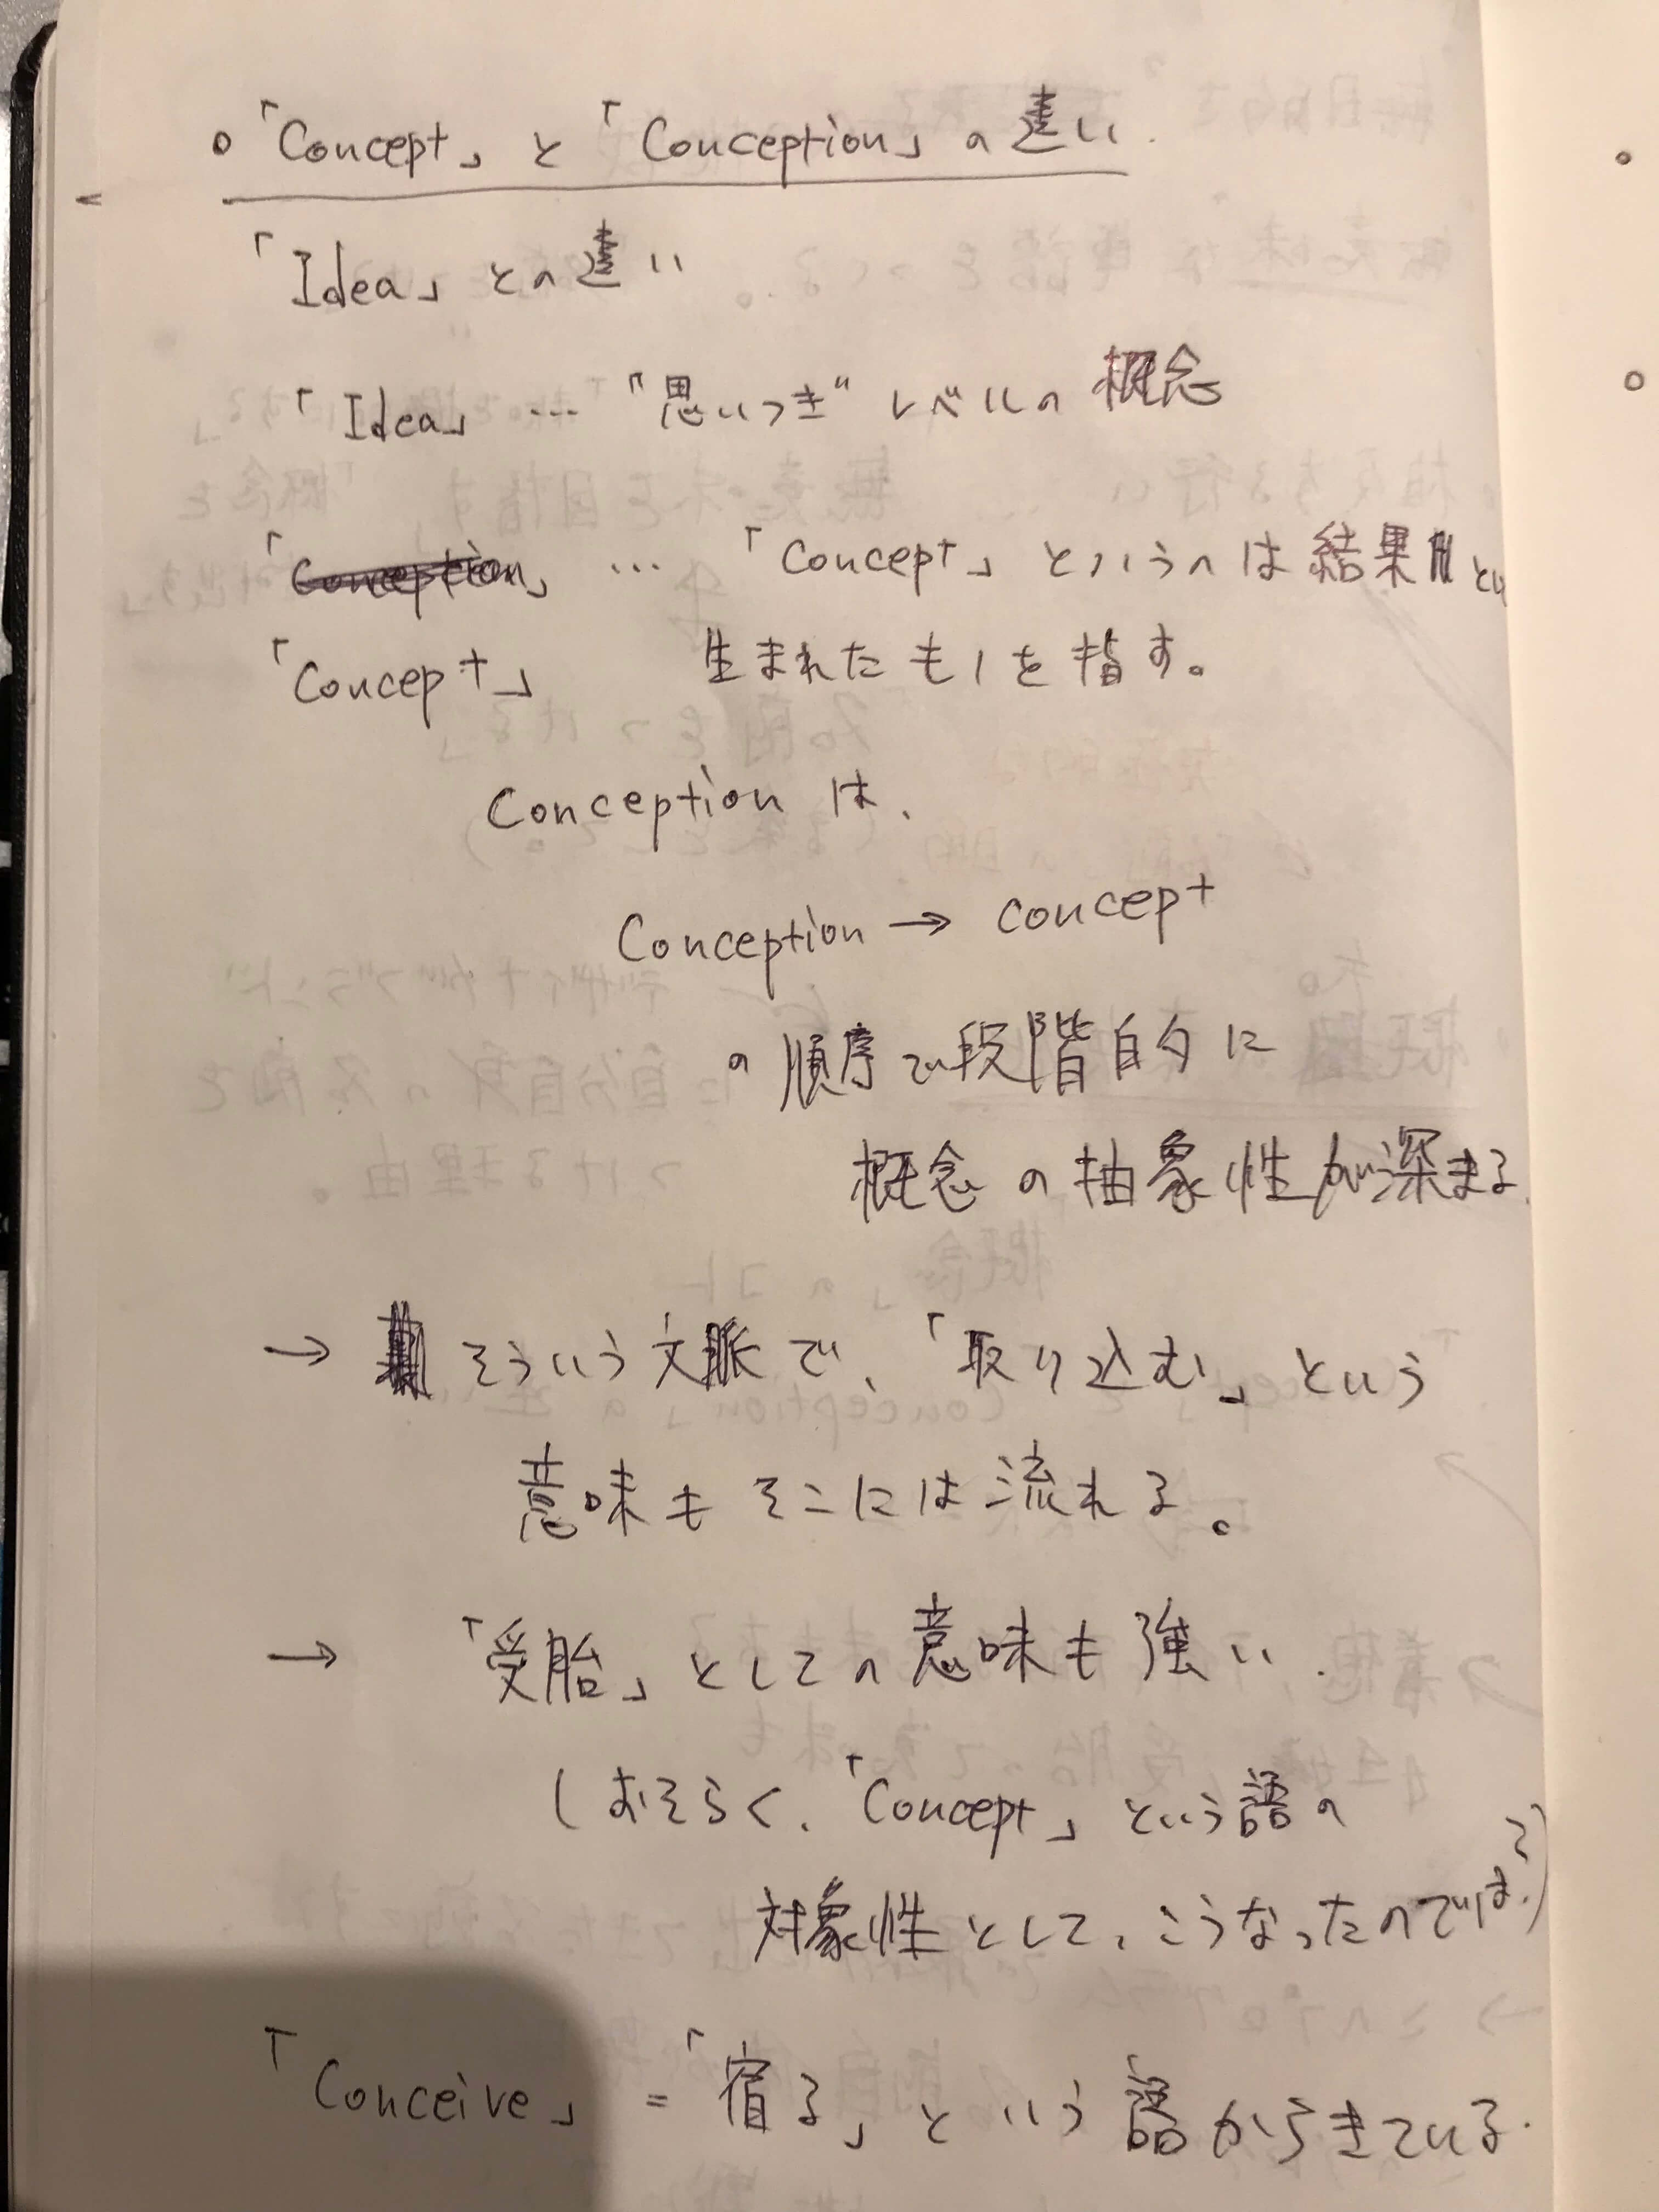 ○「Concept」と「Conception」の違い.
「Idea」との違い
「Idea」 … "思いつき" レベルの概念
「Conception」 … 「Concept」というのは結果とし
「Concept」 生まれたものを指す。
Conception は、
Conception → concept
の順序で段階的に
概念の抽象性が深まる.
→ そういう文脈で、「取り込む」という
意味もそこには流れる。
→ 「受胎」としての意味も強い.
(おそらく、「Concept」という語の
対象性として、こうなったのでは?)
「Conceive」=「宿る」という語からきている.